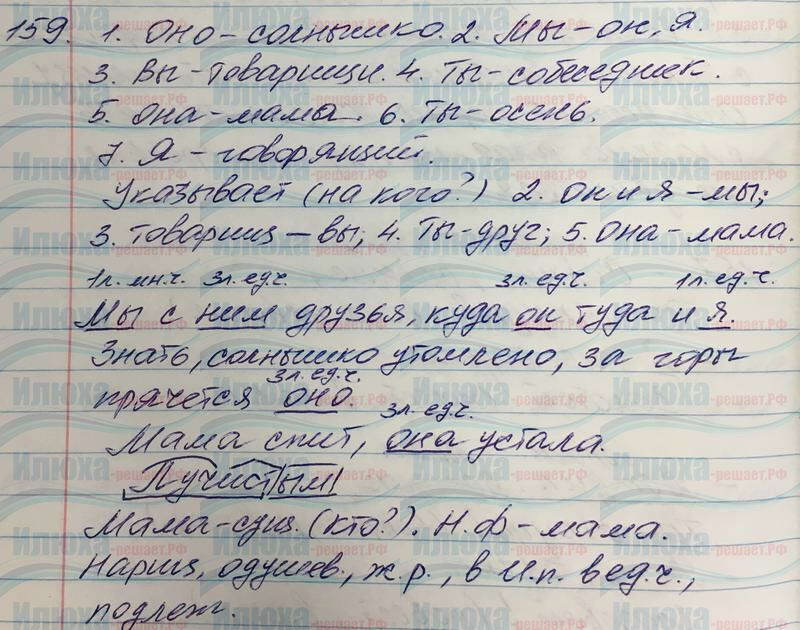 159. 1. Оно - солнышко. 2. Мы - он, я.
3. Вы - товарищи. 4. Ты - собеседник.
5. Она - мама. 6. Ты - осень.
7. Я - говорящий.
Указывает (на кого?) 2. Он и я - мы;
3. товарищ - вы; 4. Ты - друг; 5. Она - мама.
1л. мн.ч. 3л. ед.ч. 3л. ед.ч. 1л. ед.ч.
Мы с ним друзья, куда он туда и я.
Знать, солнышко утомлено, за горы
3л. ед.ч.
прячется оно.
3л. ед.ч.
Мама спит, она устала.
Лучистым
Мама - сущ. (кто?). Н.ф - мама.
Нариц, одушев., ж.р., в И.п. в ед.ч.,
подлеж.
Илюха-решает.РФ